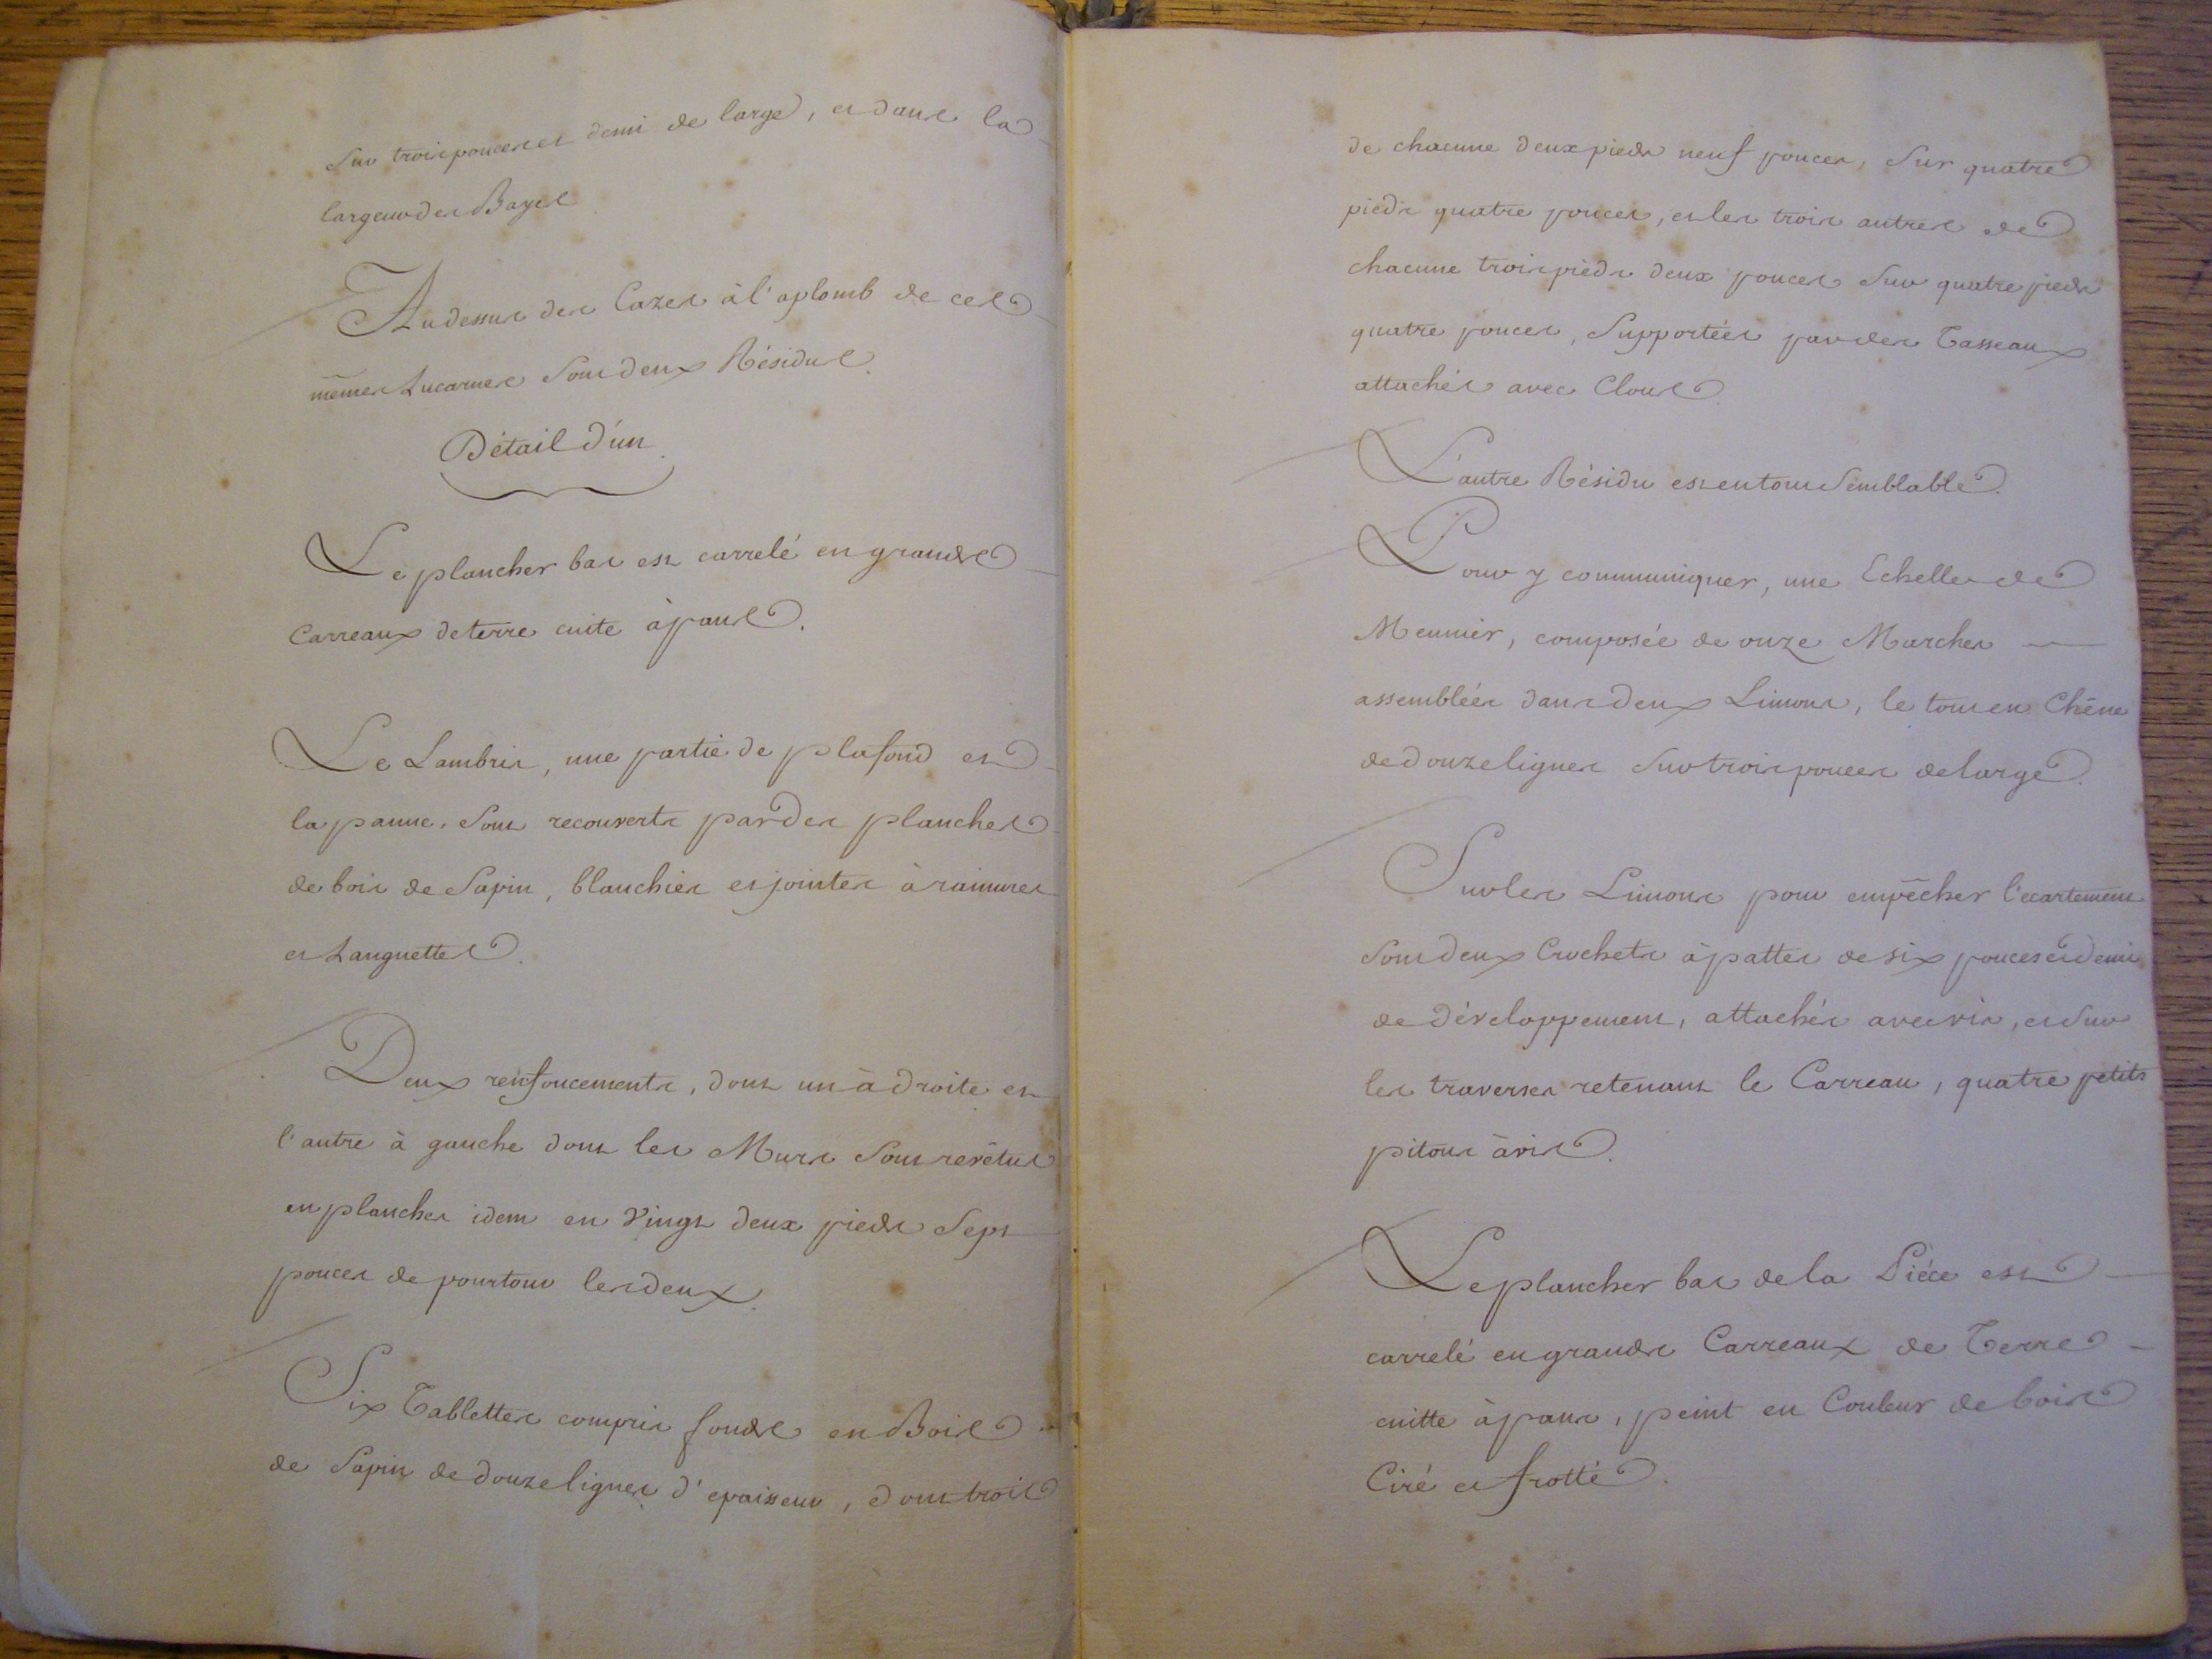 Sur trois pouces et demi de large, et dans la
largeur des Bayes
Au dessus des Cazes à l'aplomb de ces
mêmes Lucarnes Sont deux Résidus.
Détail d'un
Le plancher bas est carrelé en grands
Carreaux de terre cuite à pans.
Le Lambris, une partie de plafond et
la panne, Sont recouverts par des planches
de bois de Sapin, blanchies et jointes à rainures
et Languettes.
Deux renfoncements, dont un à droite et
l'autre à gauche dont les Murs Sont revêtus
en planches idem en Vingt deux pieds Sept
pouces de pourtour les deux.
Six Tablettes compris fonds en Bois
de Sapin de douze lignes d'epaisseur, dont trois
de chacune deux pieds neuf pouces, Sur quatre
pieds quatre pouces, et les trois autres de
chacune trois pieds deux pouces Sur quatre pieds
quatre pouces, Supportées par des Tasseaux
attachés avec Clous
L'autre Résidu est en tout Semblable.
Pour y communiquer, une Echelle de
Meunier, composée de onze Marches
assemblées dans deux Limons, le tout en Chêne
de douze lignes Sur trois pouces de large.
Sur les Limons pour empêcher l'ecartement
Sont deux Crochets à pattes de six pouces et demi
de développement, attachés avec vis, et Sur
les traverses retenant le Carreau, quatre petits
pitons à vis.
Le plancher bas de la Piéce est
carrelé en grands Carreaux de Terre
cuitte à pans, peint en Couleur de bois
Ciré et frotté.